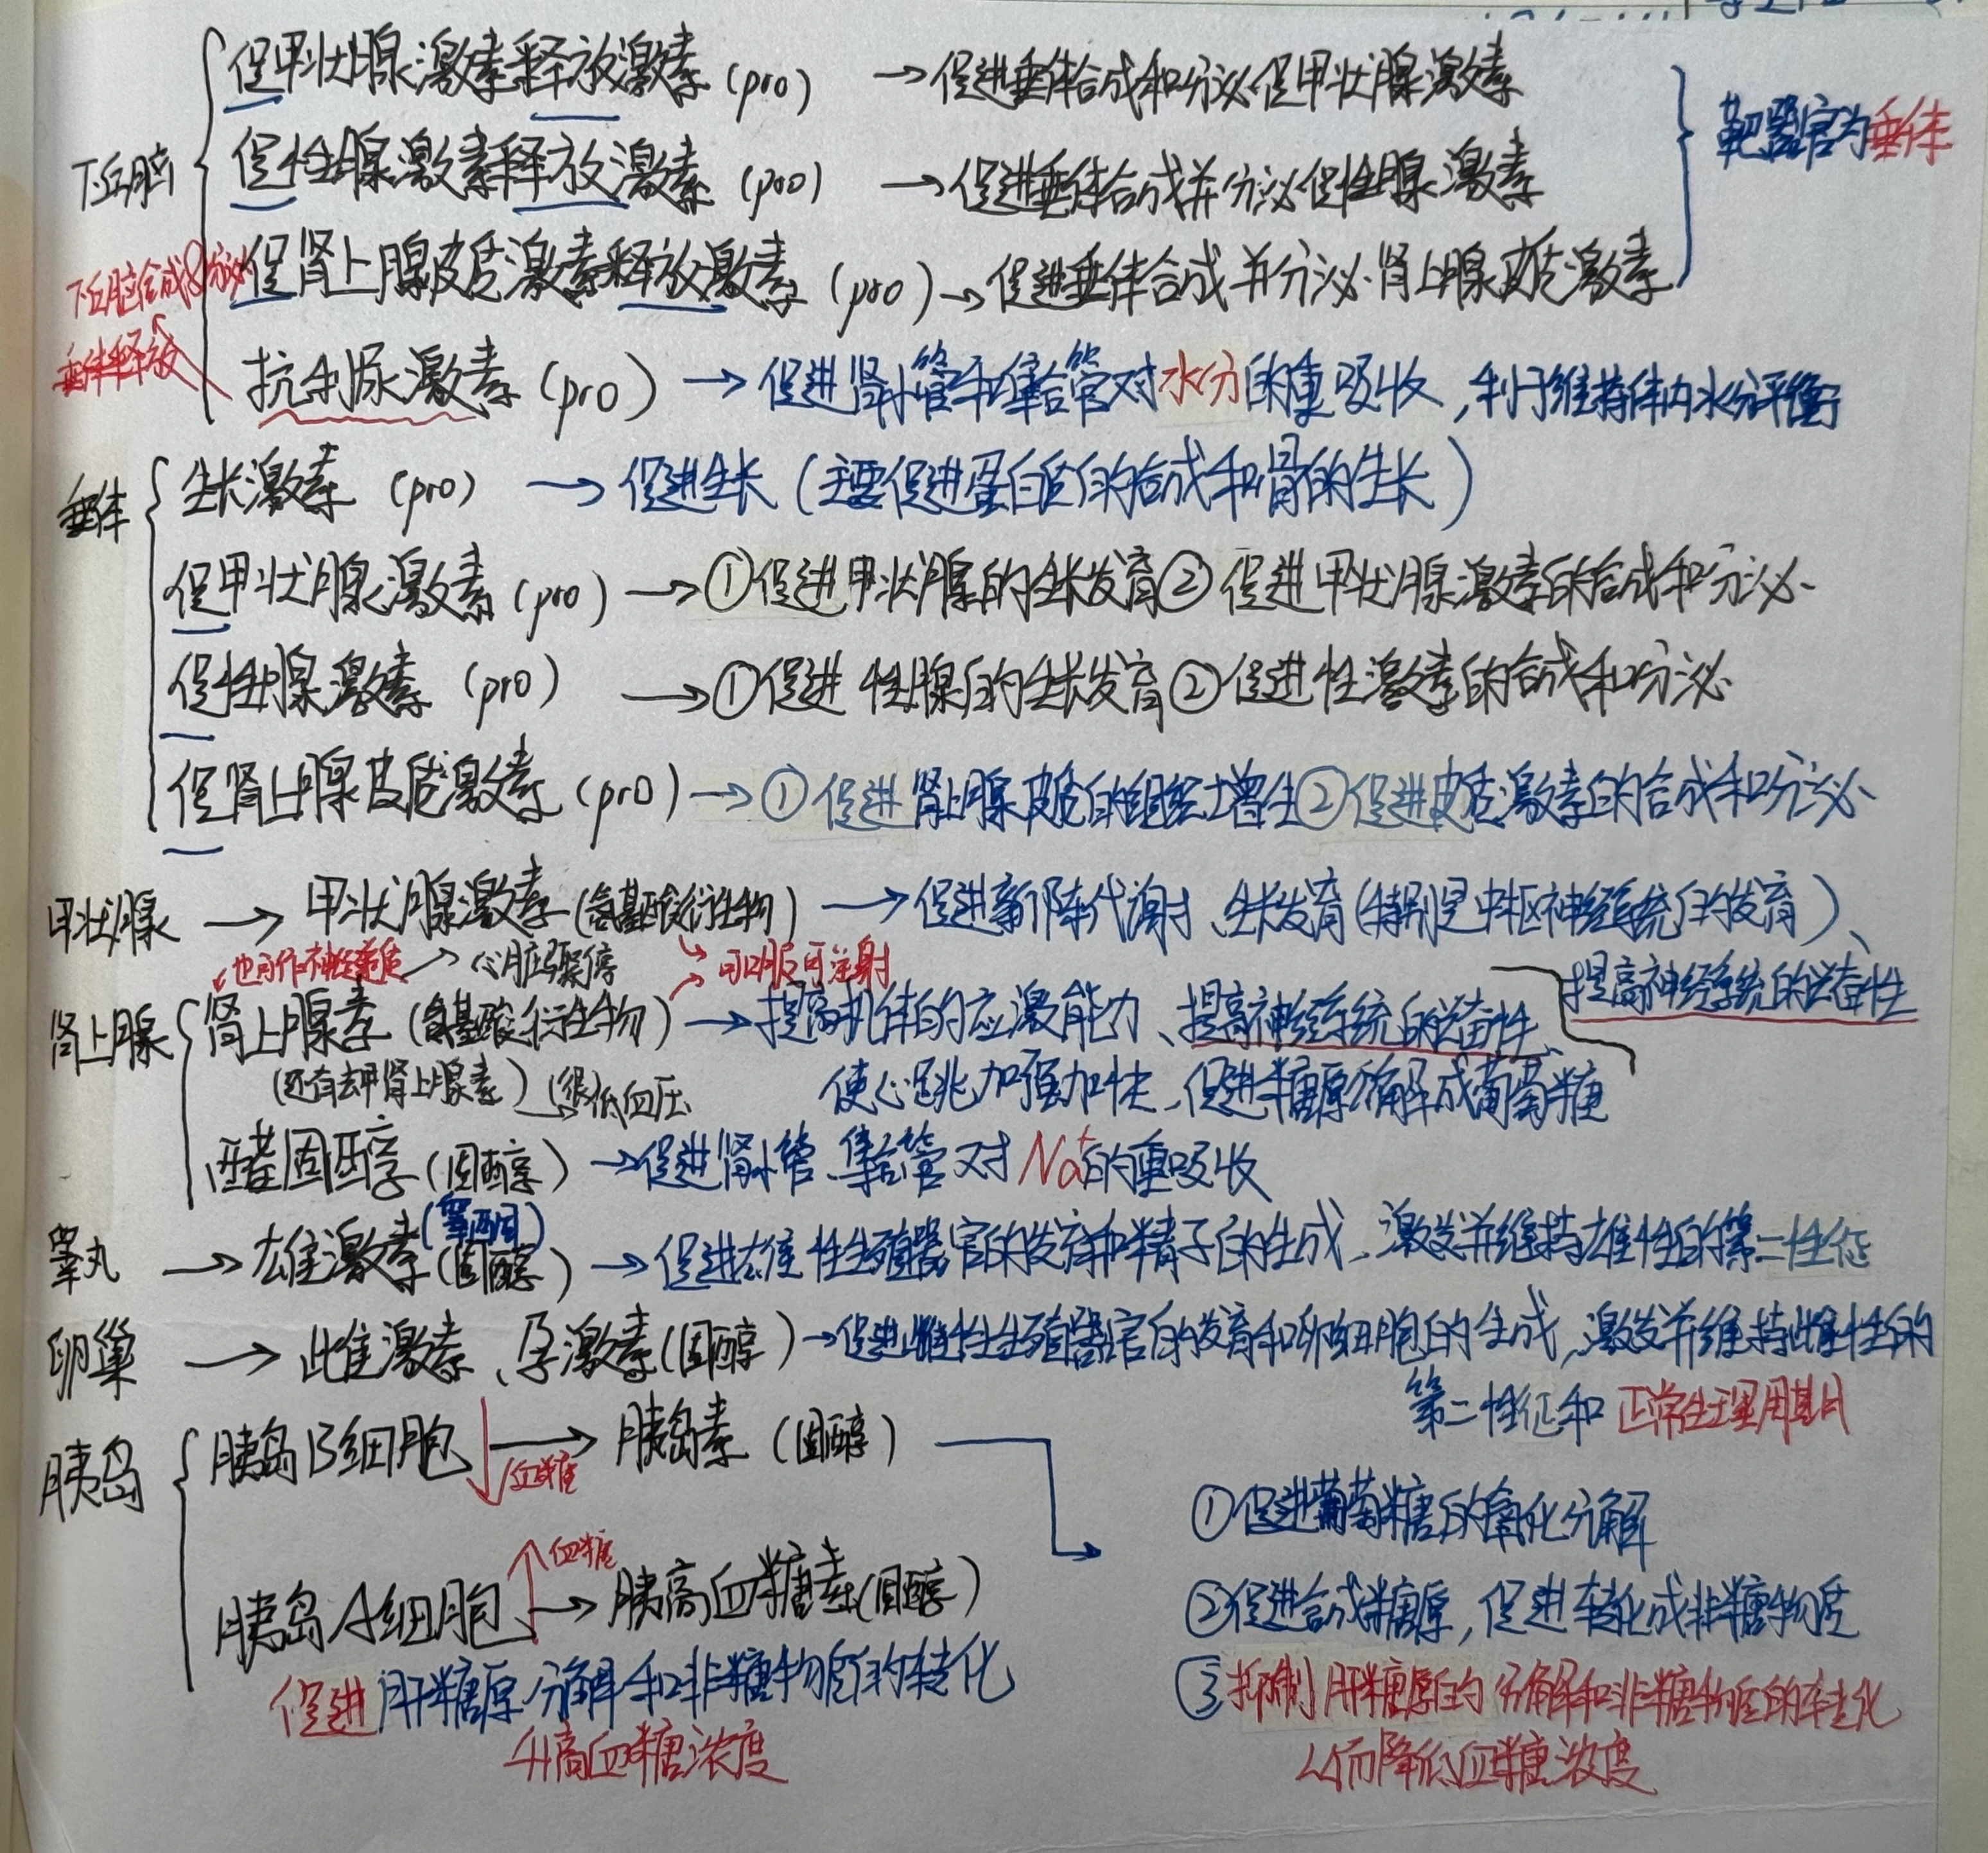 下丘脑
促甲状腺激素释放激素 (pro) → 促进垂体合成和分泌促甲状腺激素
促性腺激素释放激素 (pro) → 促进垂体合成并分泌促性腺激素
促肾上腺皮质激素释放激素 (pro) → 促进垂体合成并分泌肾上腺皮质激素
靶器官为垂体
下丘脑合成&分泌
垂体释放
抗利尿激素 (pro) → 促进肾小管和集合管对水分的重吸收,利于维持体内水分平衡
垂体
生长激素 (pro) → 促进生长 (主要促进蛋白质的合成和骨的生长)
促甲状腺激素 (pro) → ①促进甲状腺的生长发育②促进甲状腺激素的合成和分泌
促性腺激素 (pro) → ①促进性腺的生长发育②促进性激素的合成和分泌
促肾上腺皮质激素 (pro) → ①促进肾上腺皮质的组织增生②促进皮质激素的合成和分泌
甲状腺 → 甲状腺激素 (氨基酸衍生物) → 促进新陈代谢、生长发育 (特别是中枢神经系统的发育)、
提高神经系统的兴奋性
也可作神经递质 → 心脏骤停
可口服可注射
肾上腺
肾上腺素 (氨基酸衍生物) → 提高机体的应激能力、提高神经系统的兴奋性、
(还有去甲肾上腺素) 很低血压
使心跳加强加快、促进糖原分解成葡萄糖
醛固酮 (固醇) → 促进肾小管、集合管对Na⁺的重吸收
睾丸 → 雄激素 (睾酮) (固醇) → 促进雄性生殖器官的发育和精子的生成、激发并维持雄性的第二性征
卵巢 → 雌激素、孕激素 (固醇) → 促进雌性生殖器官的发育和卵细胞的生成,激发并维持雌性的
第二性征和正常生理周期
胰岛
胰岛B细胞 ↓血糖 → 胰岛素 (固醇)
①促进葡萄糖的氧化分解
胰岛A细胞 ↑血糖 → 胰高血糖素 (固醇)
②促进合成糖原,促进转化成非糖物质
促进肝糖原分解和非糖物质的转化
升高血糖浓度
③抑制肝糖原的分解和非糖物质的转化
从而降低血糖浓度